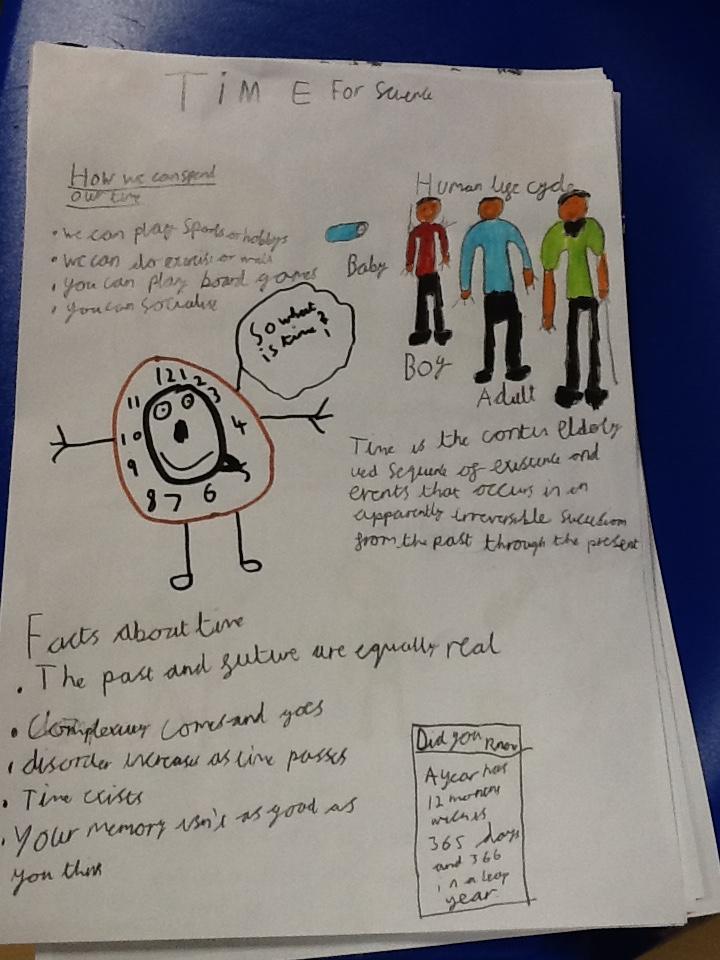 TiME For Science
How we can spend
our time
• we can play Sports or hobbys
• we can do exercise or walk
• you can play board games
• you can Socialise
Human life cycle
Baby
Boy
Adult
elderly
So what
is time?
12 1 2 3 4 5 6 7 8 9 10 11
Time is the contin
ued sequence of existence and
events that occurs in an
apparently irreversible succession
from the past through the present
Facts about time
• The past and future are equally real
• Complexity comes and goes
• disorder increases as time passes
• Time exists
• Your memory isn't as good as
you think
Did you know
A year has
12 months
which is
365 days
and 366
in a leap
year